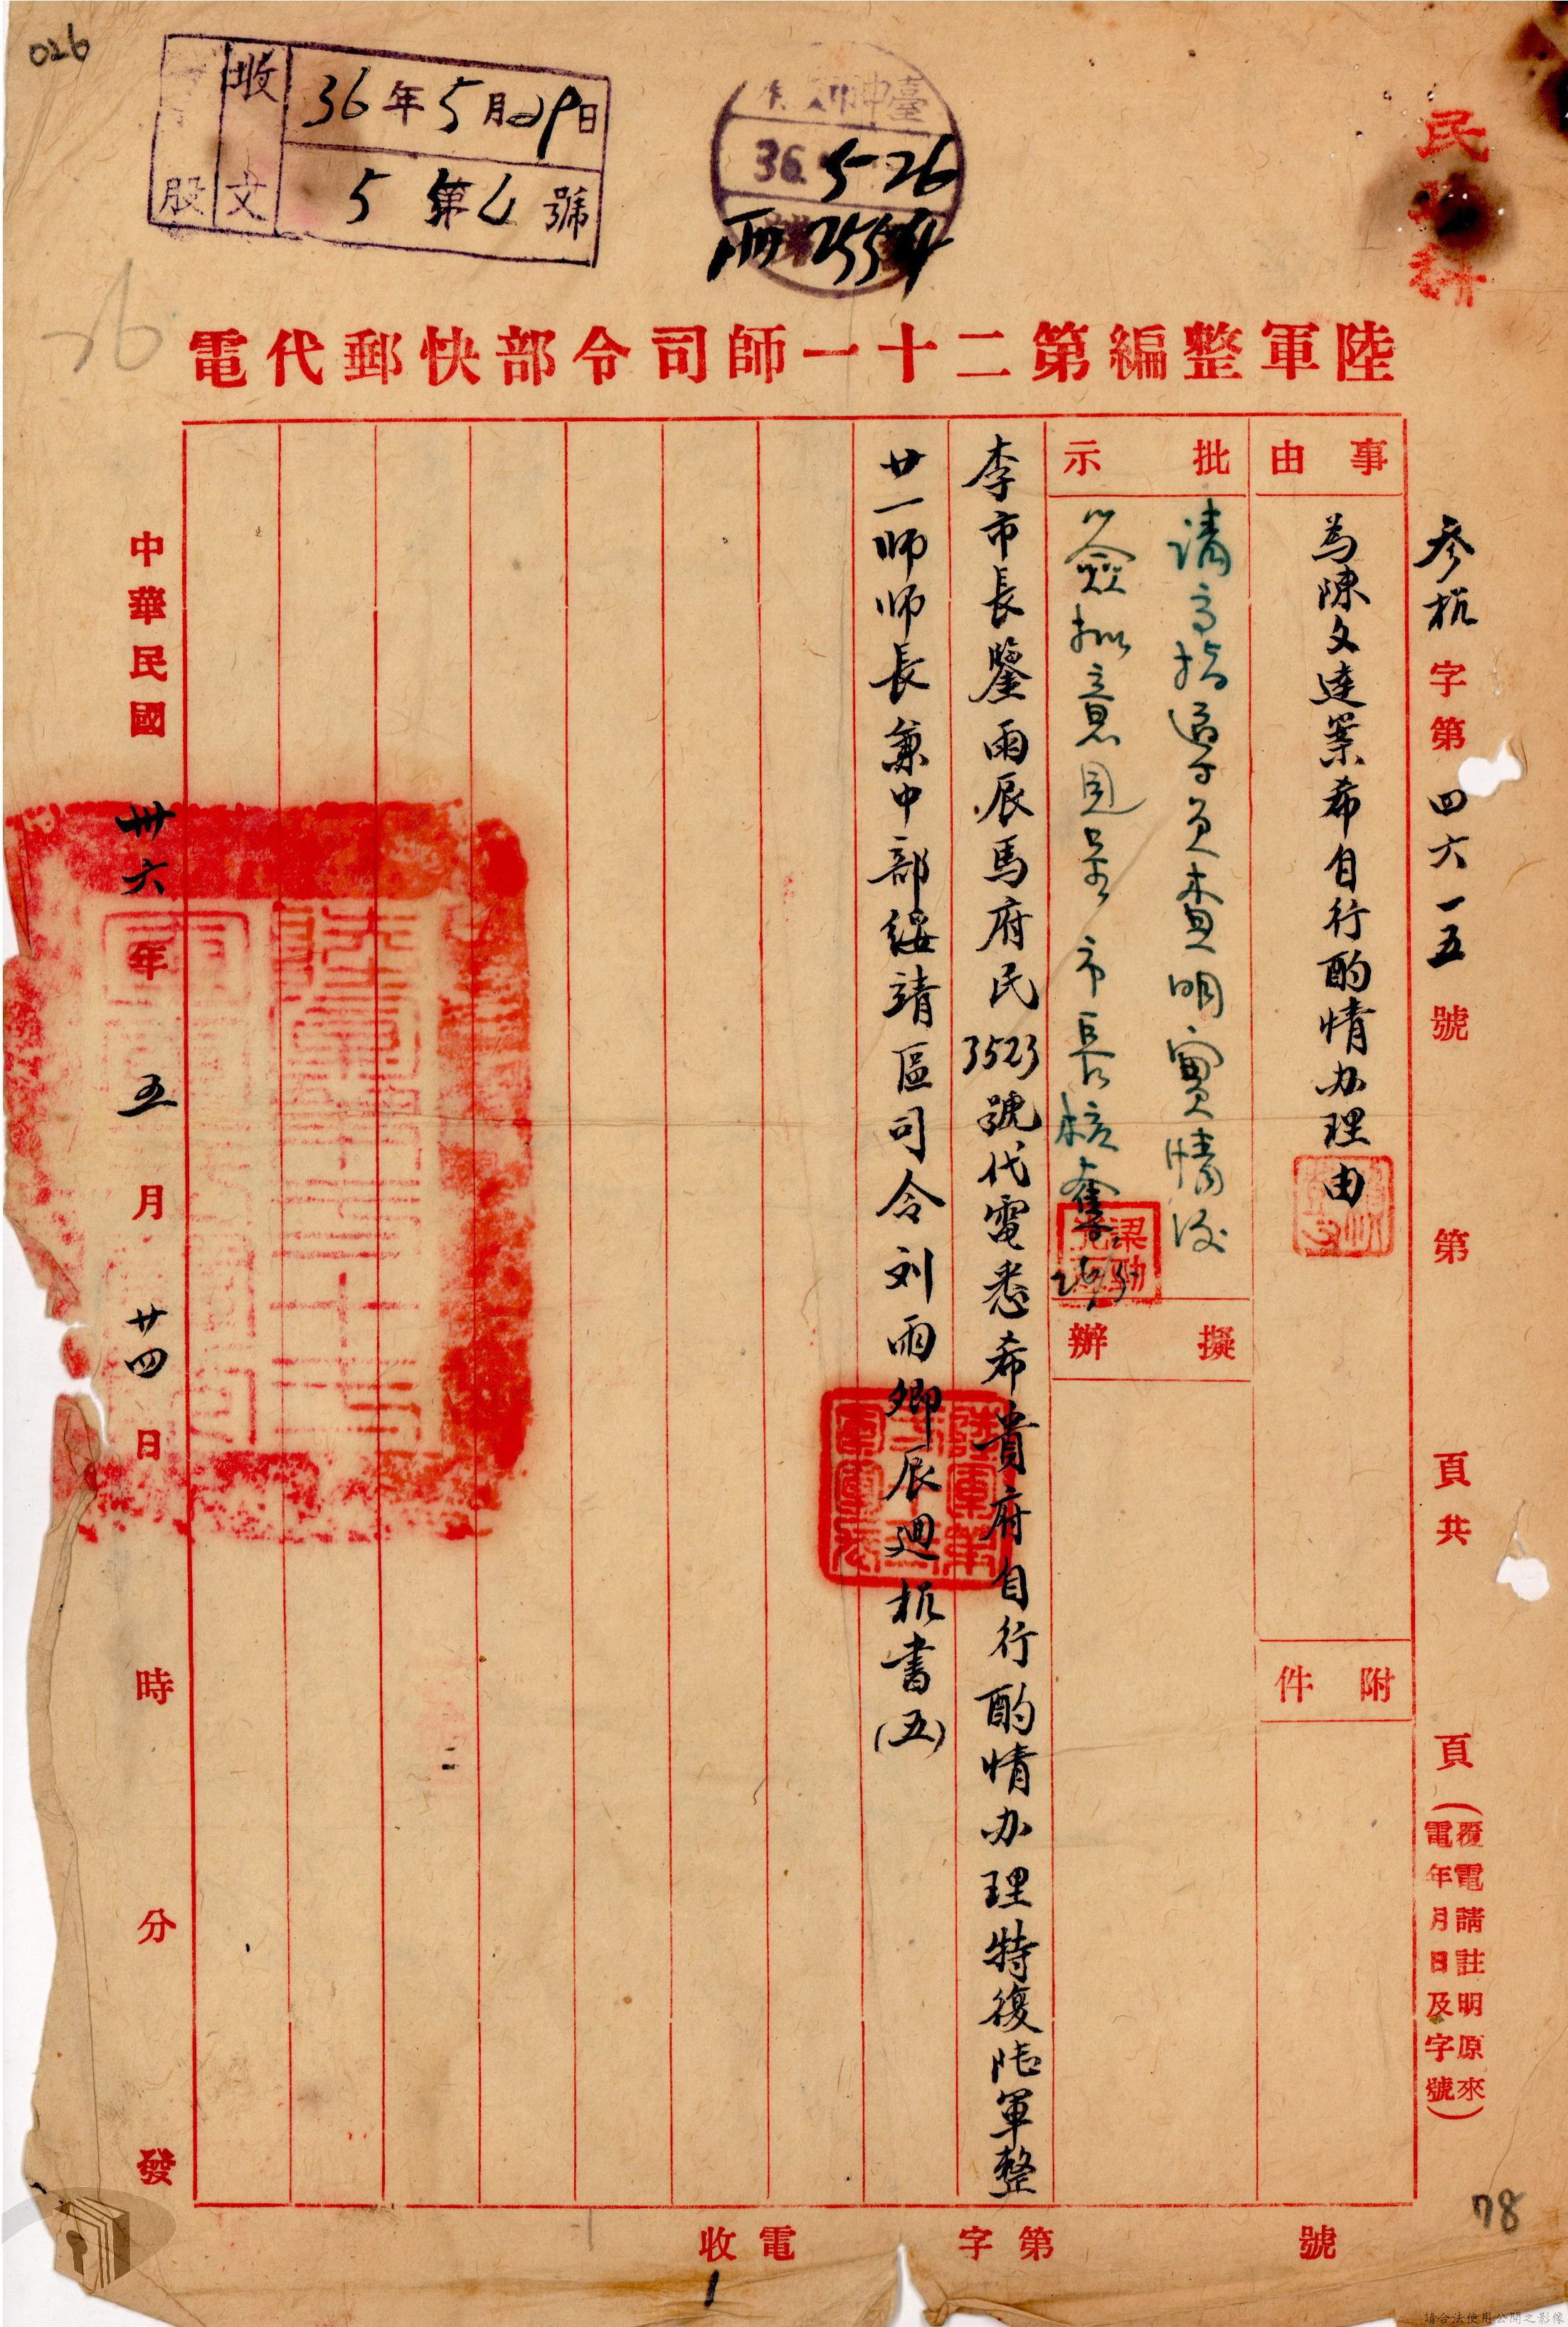 026
收文
股
36年5月29日
5第6號
臺中市
36 5 26
2554
民政科
26
陸軍整編第二十一師司令部快郵代電
參杭字第四六一五號 第 頁共 頁
(覆電請註明原來
電年月日及字號)
事由
為陳文達案希自行酌情办理由
附件
批示
員查明實情後
簽拟意見呈市長核奪
梁劼
擬辦
李市長鑒雨辰馬府民3523號代電悉希貴府自行酌情办理特復陆軍整
廿一师师長兼中部綏靖區司令刘雨卿辰迴杭書(五)
中華民國卅六年五月廿四日 時 分 發
電收 字第 號
1
78
請合法使用公開之影像